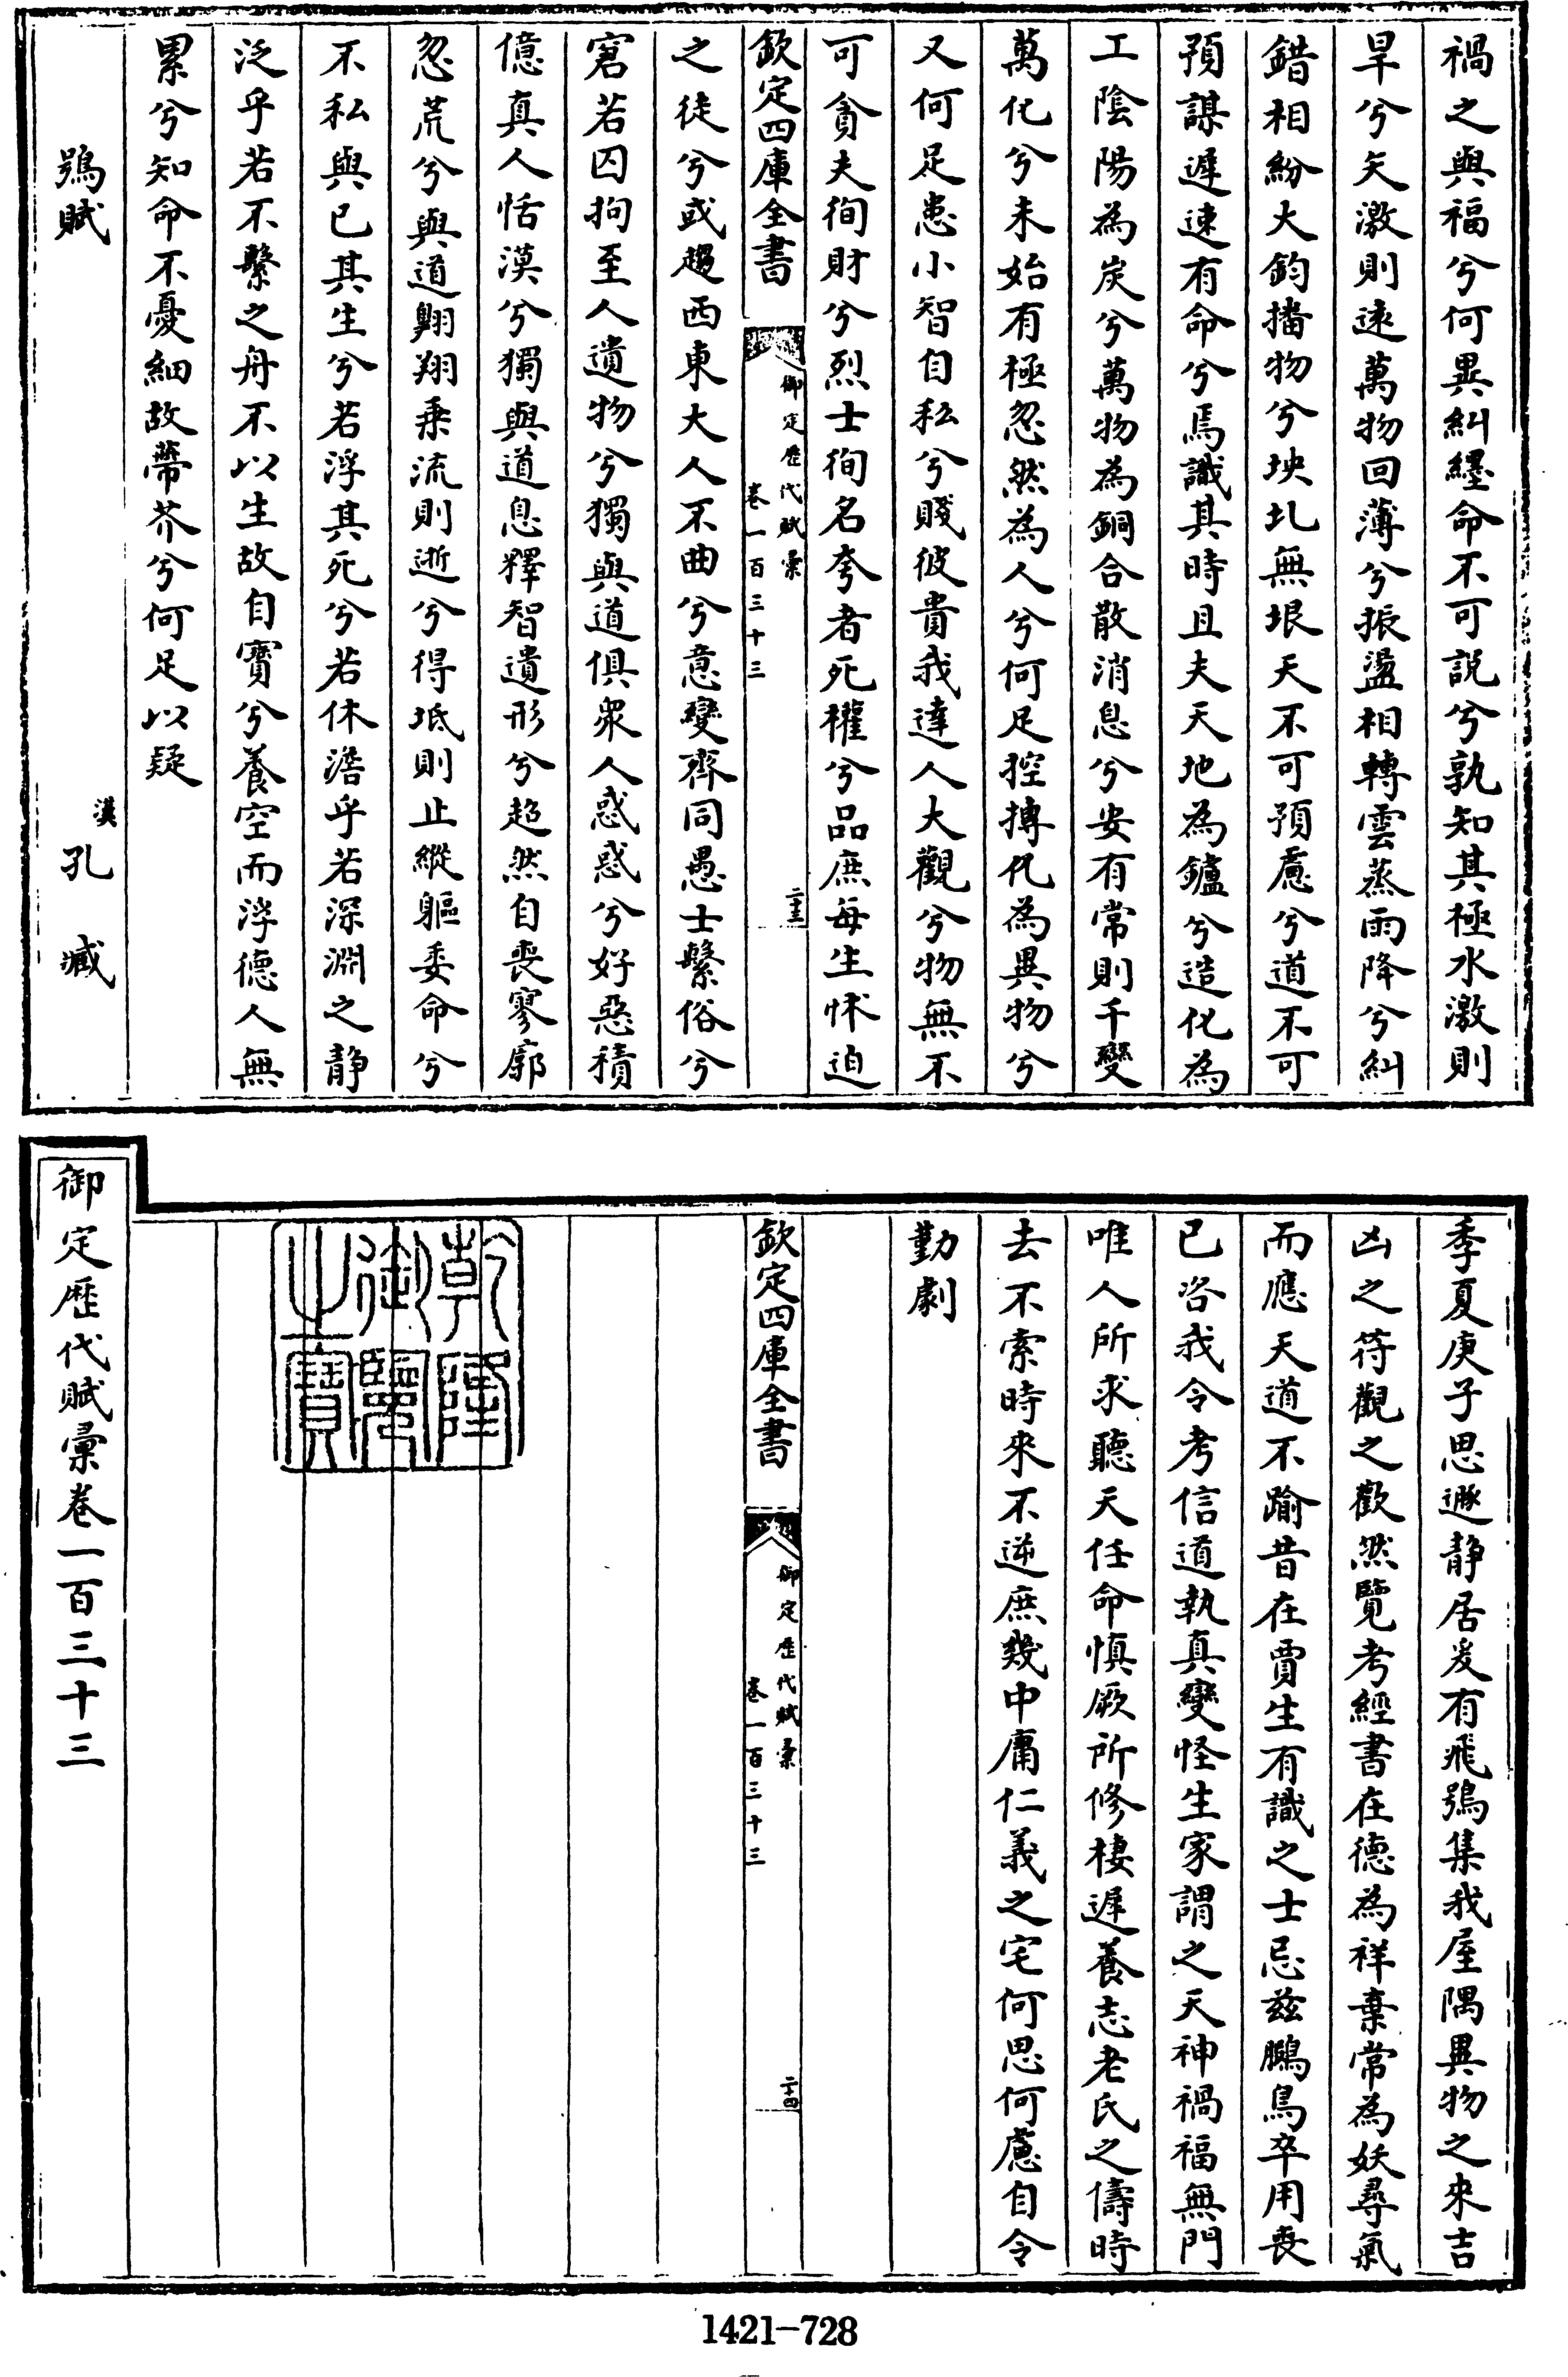 禍之與福兮何異糾纆命不可説兮孰知其極水激則
旱兮矢激則遠萬物回薄兮振盪相轉雲蒸雨降兮糾
錯相紛大鈞播物兮坱圠無垠天不可預慮兮道不可
預謀遲速有命兮焉識其時且夫天地為鑪兮造化為
工陰陽為炭兮萬物為銅合散消息兮安有常則千變
萬化兮未始有極忽然為人兮何足控摶化為異物兮
又何足患小智自私兮賤彼貴我達人大觀兮物無不
可貪夫徇財兮烈士徇名夸者死權兮品庶每生怵迫
欽定四庫全書
御定歷代賦彙
卷一百三十三
二十三
之徒兮或趨西東大人不曲兮意變齊同愚士繫俗兮
窘若囚拘至人遺物兮獨與道俱衆人惑惑兮好惡積
億真人恬漠兮獨與道息釋智遺形兮超然自喪寥廓
忽荒兮與道翺翔乘流則逝兮得坻則止縱軀委命兮
不私與已其生兮若浮其死兮若休澹乎若深淵之静
泛乎若不繫之舟不以生故自寳兮養空而浮德人無
累兮知命不憂細故蔕芥兮何足以疑
鴞賦
漢
孔臧
季夏庚子思遯静居爰有飛鴞集我屋隅異物之來吉
凶之符觀之歡然覽考經書在德為祥棄常為妖尋氣
而應天道不踰昔在賈生有識之士忌茲鵩鳥卒用喪
已咨我令考信道執真變怪生家謂之天神禍福無門
唯人所求聽天任命慎厥所修棲遲養志老氏之儔時
去不索時來不逆庶幾中庸仁義之宅何思何慮自令
勤劇
欽定四庫全書
御定歷代賦彙
卷一百三十三
二十四
乾隆
御覽
之寶
御定歷代賦彙卷一百三十三
1421-728